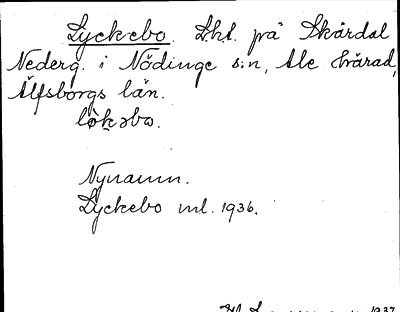 Lyckebo. Lht. på Skårdal
Nederg. i Nödinge s:n, Ale härad,
Älfsborgs län.
Nynamn.
Lyckebo ml. 1936.
1937